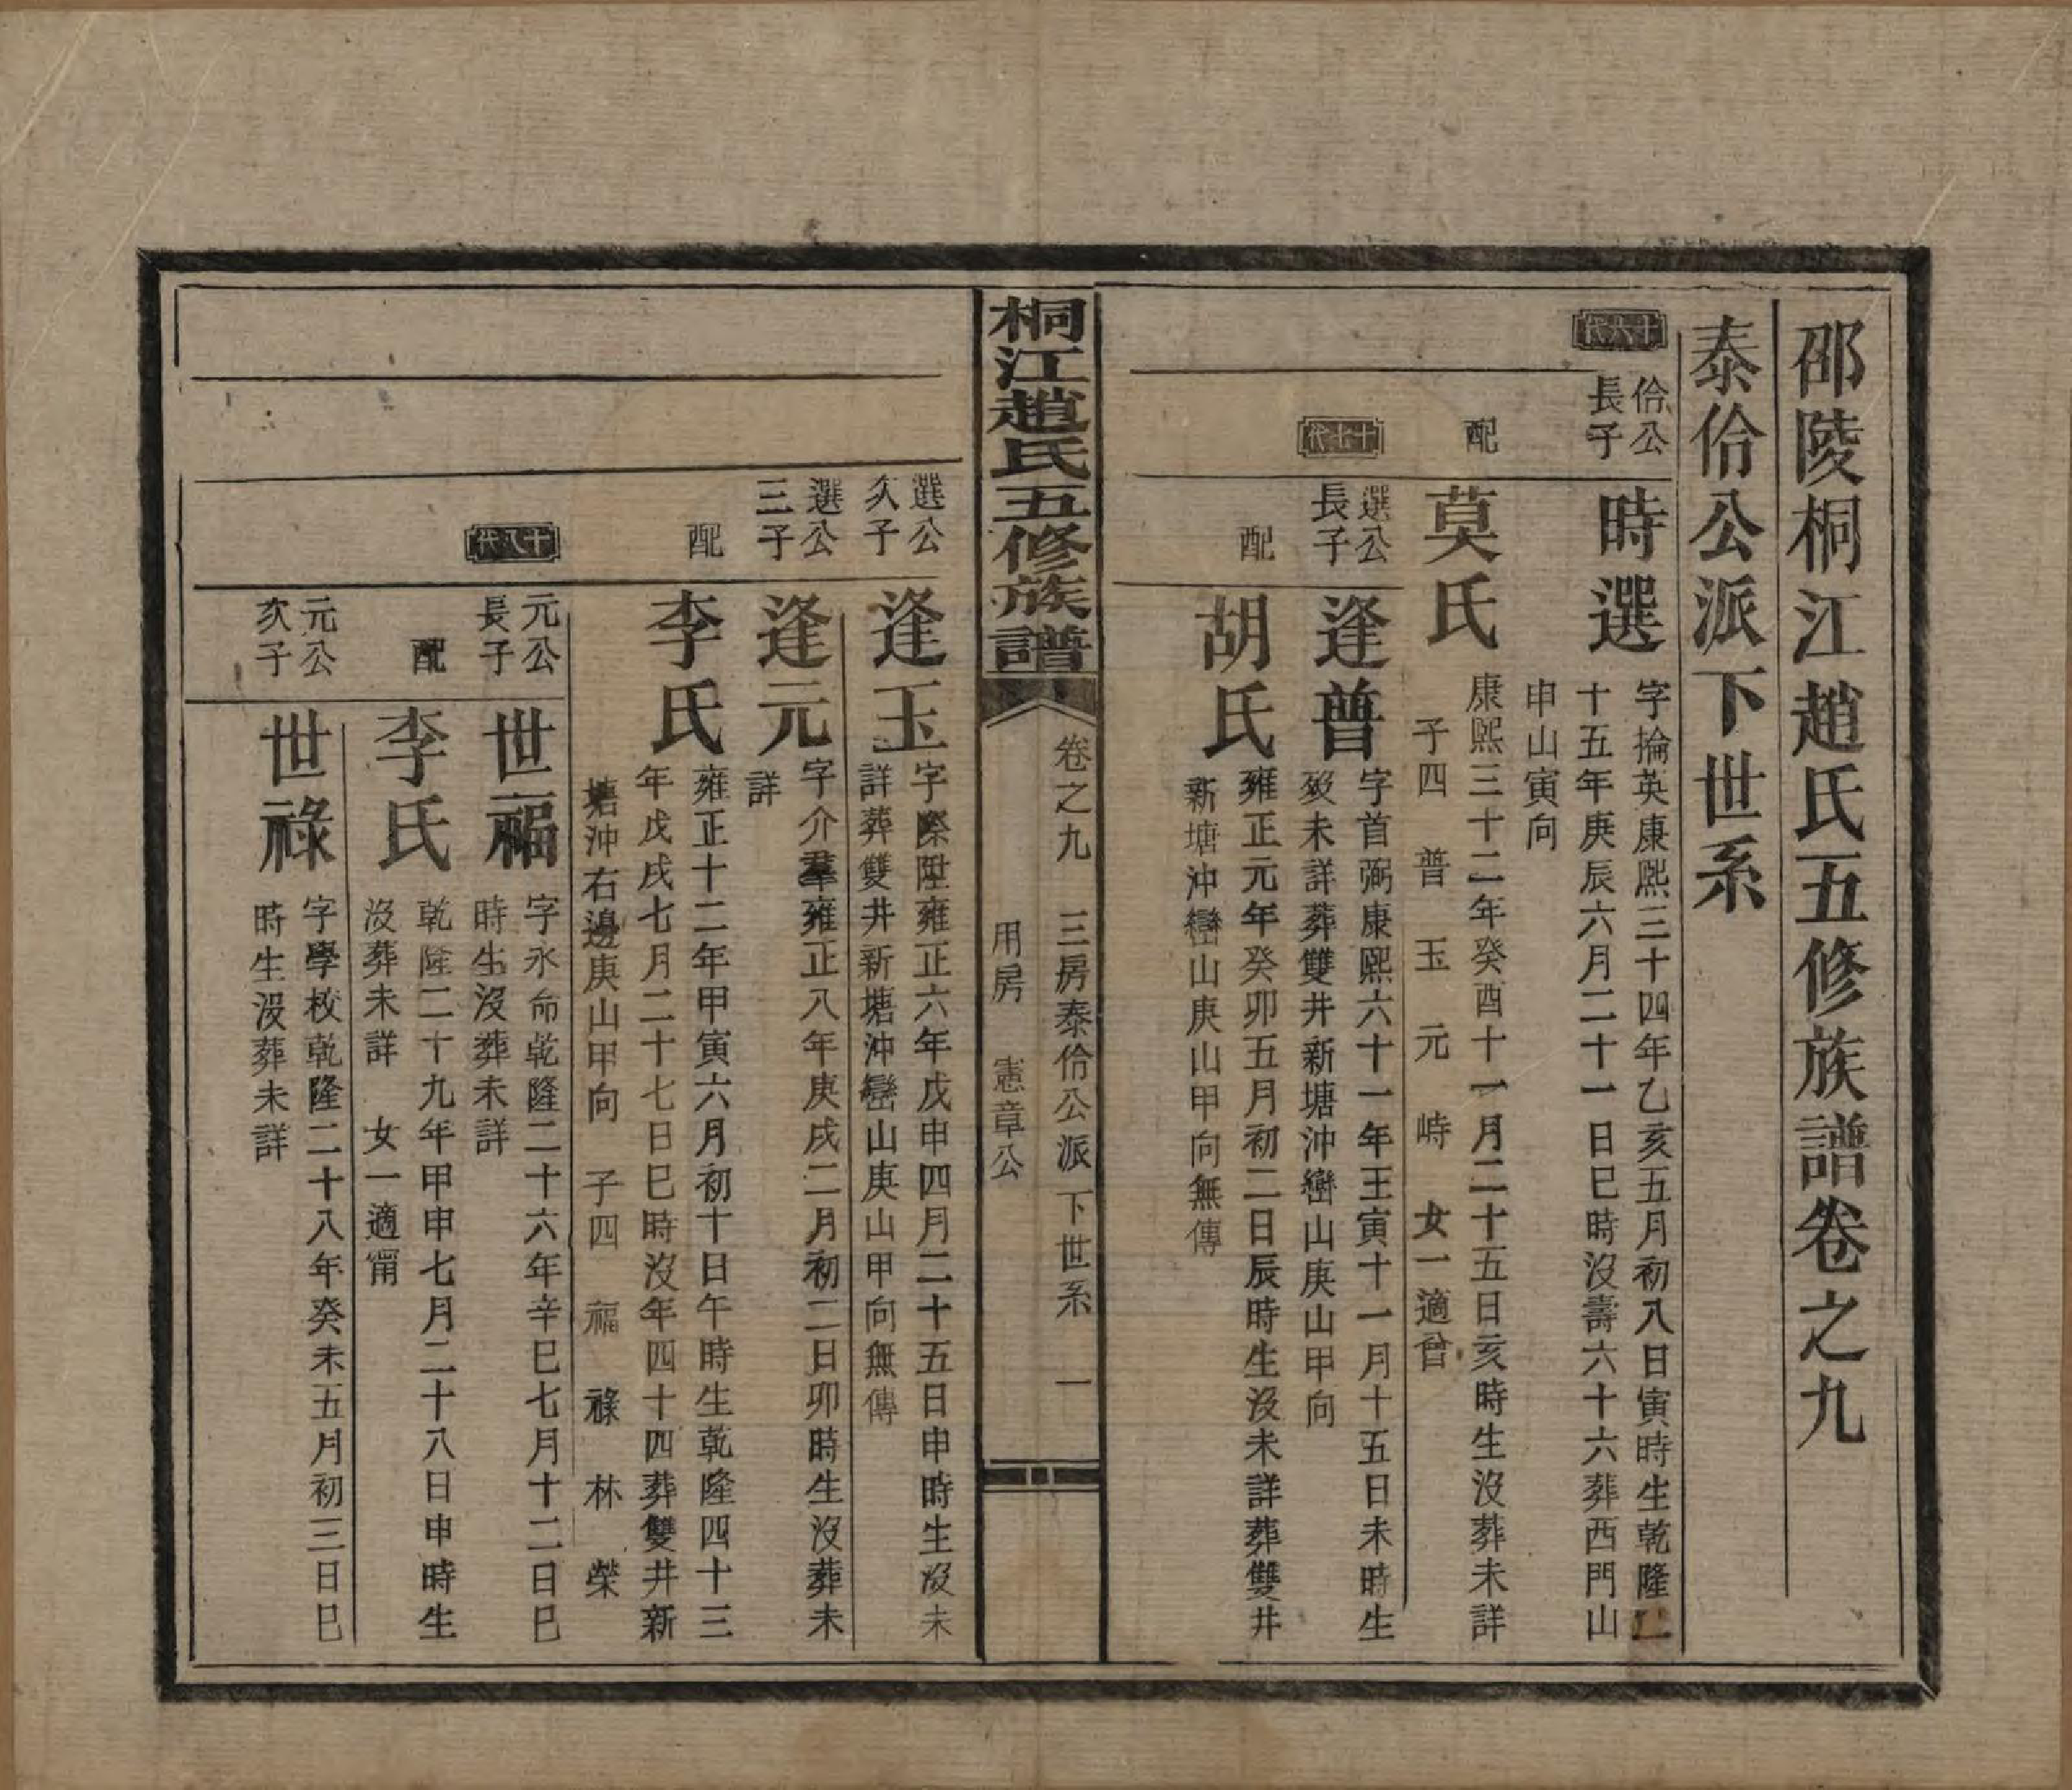 邵陵桐江趙氏五修族譜卷之九
泰佮公派下世系
十六代
佮公
長子
時選
字掄英康熙三十四年乙亥五月初八日寅時生乾隆二
十五年庚辰六月二十一日巳時沒壽六十六葬西門山
申山寅向
配
莫氏
康熙三十二年癸酉十一月二十五日亥時生沒葬未詳
子四 普 玉 元 峙 女一適曾
十七代
選公
長子
逢普
字首弼康熙六十一年王寅十一月十五日未時生
歿未詳葬雙井新塘沖巒山庚山甲向
配
胡氏
雍正元年癸卯五月初二日辰時生沒未詳葬雙井
新塘沖巒山庚山甲向無傳
桐江趙氏五修族譜
卷之九 三房泰佮公派下世系 一
用房 憲章公
選公
次子
逢玉
字際陞雍正六年戊申四月二十五日申時生沒未
詳葬雙井新塘沖巒山庚山甲向無傳
選公
三子
逢元
字介羣雍正八年庚戌二月初二日卯時生沒葬未
詳
配
李氏
雍正十二年甲寅六月初十日午時生乾隆四十三
年戊戌七月二十七日巳時沒年四十四葬雙井新
塘沖右邊庚山甲向 子四 福 祿 林 榮
十八代
元公
長子
世福
字永命乾隆二十六年辛巳七月十二日巳
時生沒葬未詳
配
李氏
乾隆二十九年甲申七月二十八日申時生
沒葬未詳 女一適甯
元公
次子
世祿
字學校乾隆二十八年癸未五月初三日巳
時生沒葬未詳